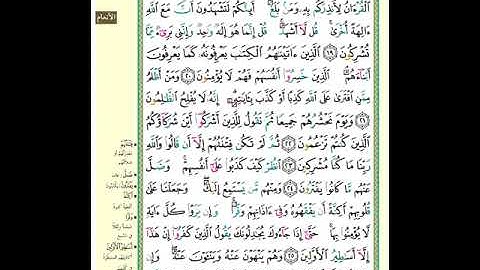 الأنعام
ٱلْقُرْءَانُ لِأُنذِرَكُم بِهِۦ وَمَنۢ بَلَغَ ۚ أَئِنَّكُمْ لَتَشْهَدُونَ أَنَّ مَعَ ٱللَّهِ
ءَالِهَةً أُخْرَىٰ ۚ قُل لَّآ أَشْهَدُ ۚ قُلْ إِنَّمَا هُوَ إِلَٰهٌ وَٰحِدٌ وَإِنَّنِى بَرِىٓءٌ مِّمَّا
تُشْرِكُونَ ﴿١٩﴾ ٱلَّذِينَ ءَاتَيْنَٰهُمُ ٱلْكِتَٰبَ يَعْرِفُونَهُۥ كَمَا يَعْرِفُونَ
أَبْنَآءَهُمُ ۘ ٱلَّذِينَ خَسِرُوٓا۟ أَنفُسَهُمْ فَهُمْ لَا يُؤْمِنُونَ ﴿٢٠﴾ وَمَنْ أَظْلَمُ
مِمَّنِ ٱفْتَرَىٰ عَلَى ٱللَّهِ كَذِبًا أَوْ كَذَّبَ بِـَٔايَٰتِهِۦٓ ۗ إِنَّهُۥ لَا يُفْلِحُ ٱلظَّٰلِمُونَ
﴿٢١﴾ وَيَوْمَ نَحْشُرُهُمْ جَمِيعًا ثُمَّ نَقُولُ لِلَّذِينَ أَشْرَكُوٓا۟ أَيْنَ شُرَكَآؤُكُمُ
ٱلَّذِينَ كُنتُمْ تَزْعُمُونَ ﴿٢٢﴾ ثُمَّ لَمْ تَكُن فِتْنَتُهُمْ إِلَّآ أَن قَالُوا۟ وَٱللَّهِ
رَبِّنَا مَا كُنَّا مُشْرِكِينَ ﴿٢٣﴾ ٱنظُرْ كَيْفَ كَذَبُوا۟ عَلَىٰٓ أَنفُسِهِمْ ۚ وَضَلَّ
عَنْهُم مَّا كَانُوا۟ يَفْتَرُونَ ﴿٢٤﴾ وَمِنْهُم مَّن يَسْتَمِعُ إِلَيْكَ ۖ وَجَعَلْنَا عَلَىٰ
قُلُوبِهِمْ أَكِنَّةً أَن يَفْقَهُوهُ وَفِىٓ ءَاذَانِهِمْ وَقْرًا ۚ وَإِن يَرَوْا۟ كُلَّ ءَايَةٍ
لَّا يُؤْمِنُوا۟ بِهَا ۚ حَتَّىٰٓ إِذَا جَآءُوكَ يُجَٰدِلُونَكَ يَقُولُ ٱلَّذِينَ كَفَرُوٓا۟ إِنْ هَٰذَآ
إِلَّآ أَسَٰطِيرُ ٱلْأَوَّلِينَ ﴿٢٥﴾ وَهُمْ يَنْهَوْنَ عَنْهُ وَيَنْـَٔوْنَ عَنْهُ ۖ